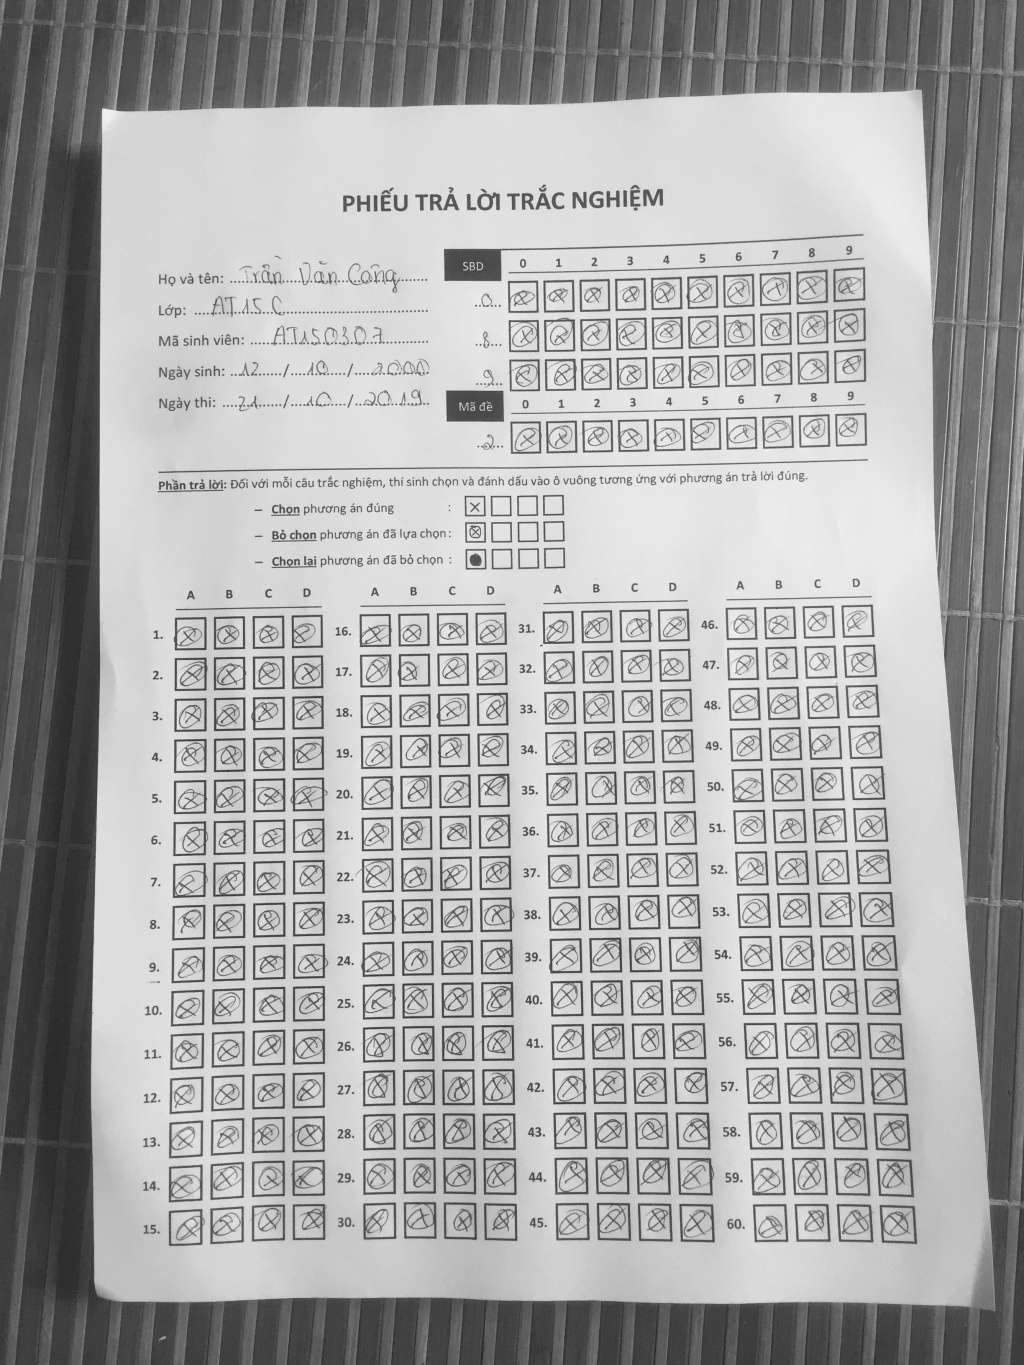 PHIẾU TRẢ LỜI TRẮC NGHIỆM
Họ và tên: ...Trần Văn Công......
Lớp: ....AT15C..............
Mã sinh viên: .....AT150307........
Ngày sinh: ...12....../....10...../....2000
Ngày thi: ....21...../....10..../...2019..
SBD 0 1 2 3 4 5 6 7 8 9
..0...
..8...
..9...
Mã đề 0 1 2 3 4 5 6 7 8 9
..2...
Phần trả lời: Đối với mỗi câu trắc nghiệm, thí sinh chọn và đánh dấu vào ô vuông tương ứng với phương án trả lời đúng.
– Chọn phương án đúng :
– Bỏ chọn phương án đã lựa chọn :
– Chọn lại phương án đã bỏ chọn :
A B C D
1.
2.
3.
4.
5.
6.
7.
8.
9.
10.
11.
12.
13.
14.
15.
A B C D
16.
17.
18.
19.
20.
21.
22.
23.
24.
25.
26.
27.
28.
29.
30.
A B C D
31.
32.
33.
34.
35.
36.
37.
38.
39.
40.
41.
42.
43.
44.
45.
A B C D
46.
47.
48.
49.
50.
51.
52.
53.
54.
55.
56.
57.
58.
59.
60.